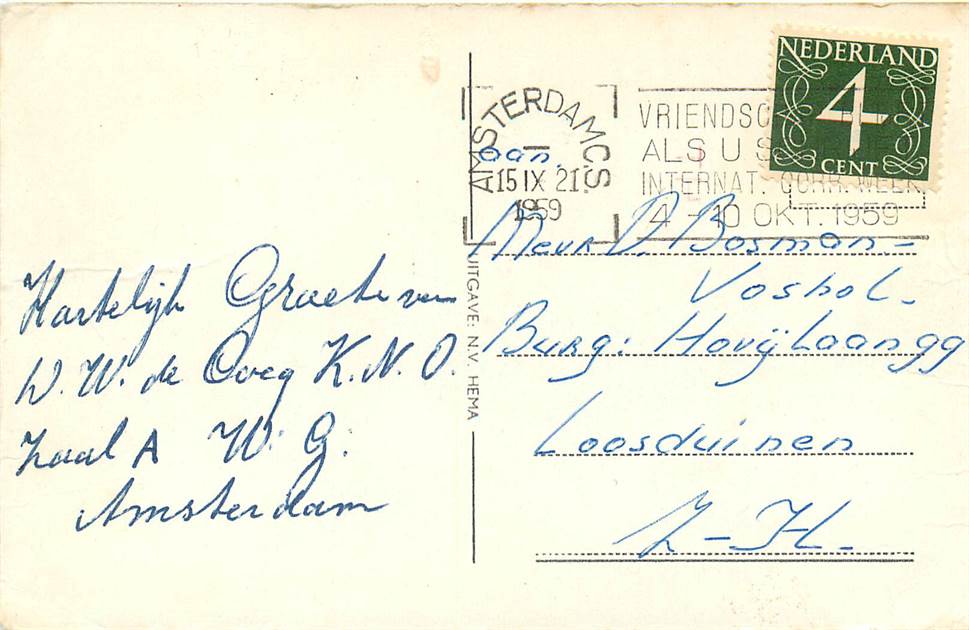 Hartelijk Groete van
W. W. de Ooeg K.N.O.
Zaal A W. G.
Amsterdam
UITGAVE: N.V. HEMA
AMSTERDAM C.S.
15 IX 21
1959
VRIENDSC
ALS U S
INTERNAT. CORR. WEEK
4 - 10 OKT. 1959
NEDERLAND
4
CENT
aan.
Mevr D. Bosman-
Voshol.
Burg: Hovÿ Laan 99
Loosduinen
Z-H.